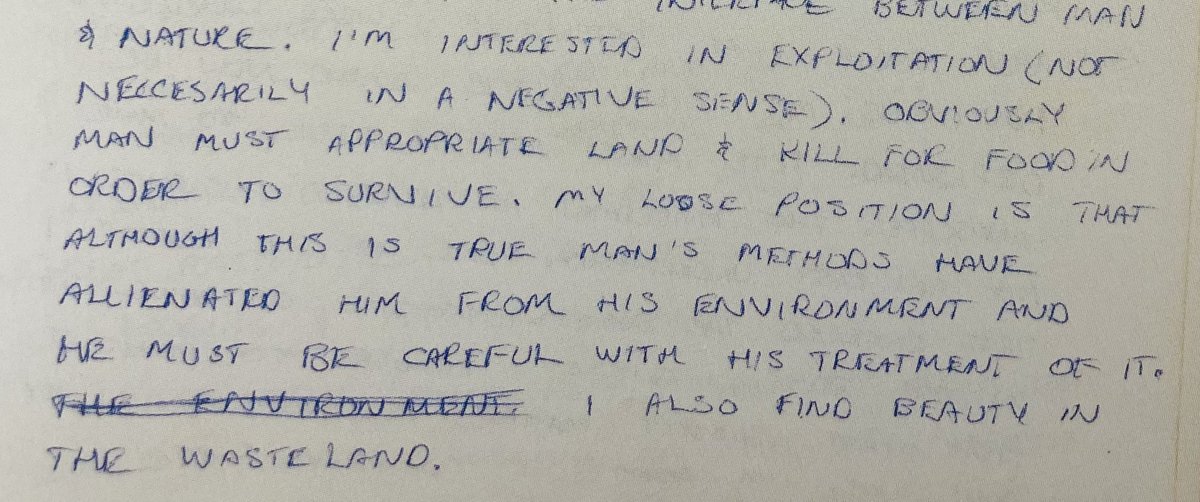 THE INTERFACE BETWEEN MAN
& NATURE. I'M INTERESTED IN EXPLOITATION (NOT
NECCESARILY IN A NEGATIVE SENSE). OBVIOUSLY
MAN MUST APPROPRIATE LAND & KILL FOR FOOD IN
ORDER TO SURVIVE. MY LOOSE POSITION IS THAT
ALTHOUGH THIS IS TRUE MAN'S METHODS HAVE
ALLIENATED HIM FROM HIS ENVIRONMENT AND
HE MUST BE CAREFUL WITH HIS TREATMENT OF IT.
THE ENVIRONMENT. I ALSO FIND BEAUTY IN
THE WASTELAND.